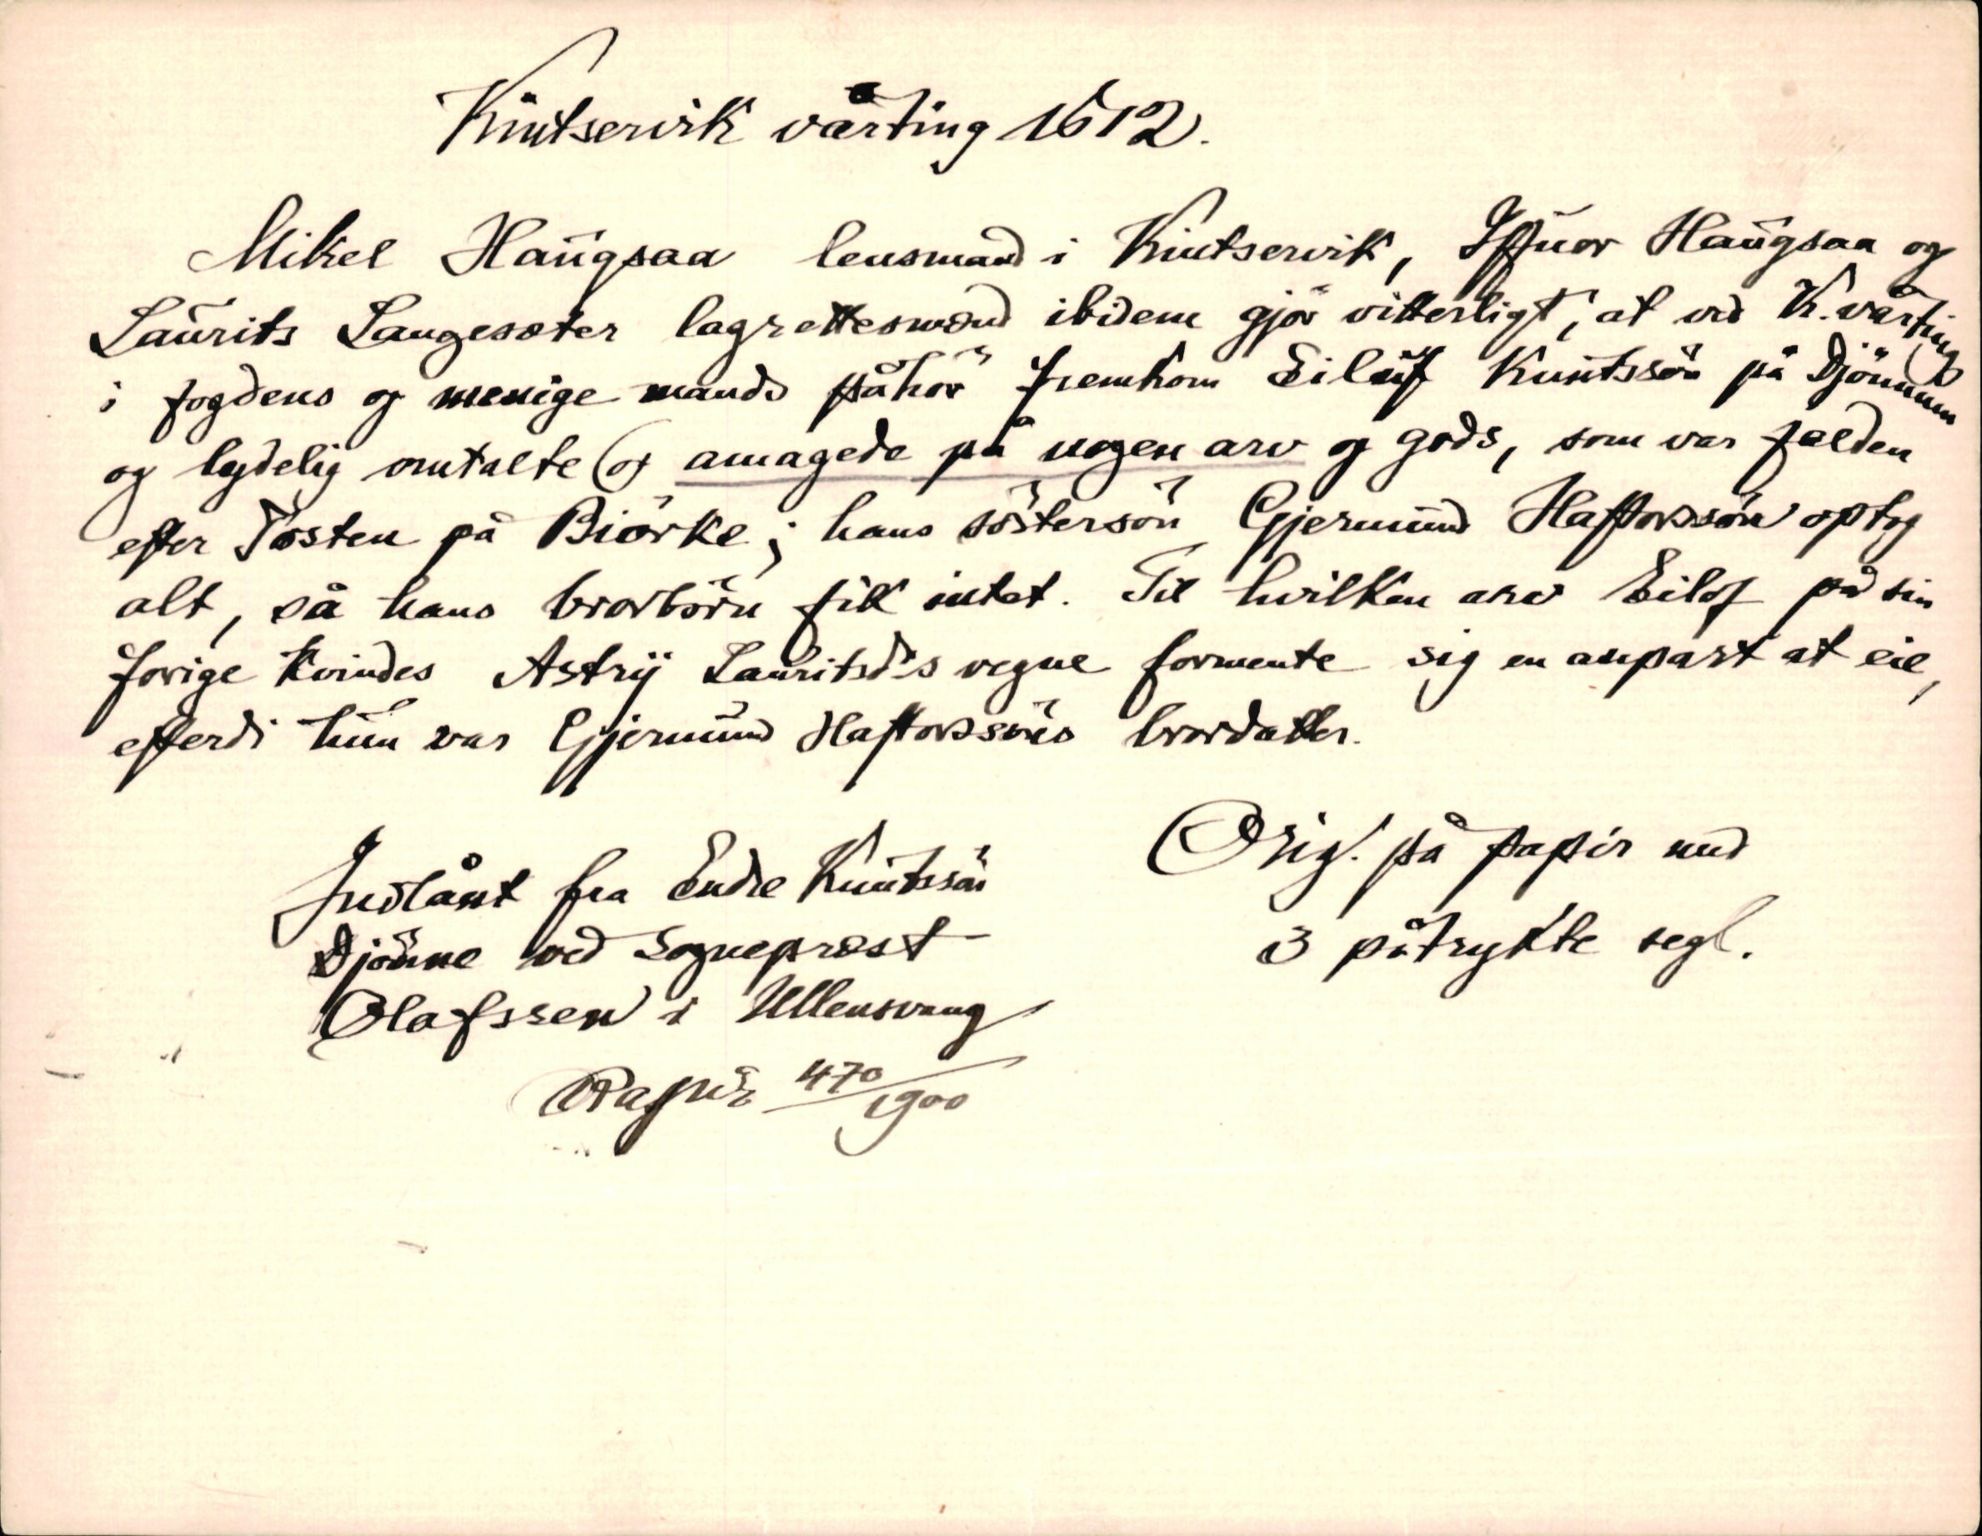 Kintservik vårting 1612.
Mikel Haugsaa lensmand i Kintservik, Iffuor Haugsaa og
Laurits Langesæter lagrettesmænd ibidem gjør vitterligt, at ved K. vårting
i fogdens og menige mands påhør fremkom Eiluf Knutssön på Djönnum
og lydelig omtalte (og amagede på nogen arv og gods, som var falden
efter Tosten på Biörke; hans söstersön Gjermund Haftorssön optog
alt, så hans brorbörn fik intet. Til hvilken arv Eilof på sin
forige kvindes Astrij Lauritsd's vegne formente sig en anpart at eie,
efterdi hun var Gjermund Haftorssöns brordatter.
Indlånt fra Endre Knutssön
Djönne ved Sogneprest
Olafssen i Ullensvang
Rapir 470/1900
Orig. på papir med
3 påtrykte segl.